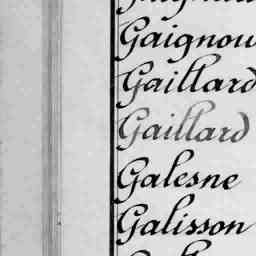 Gaignou
Gaillard
Gaillard
Galesne
Galisson